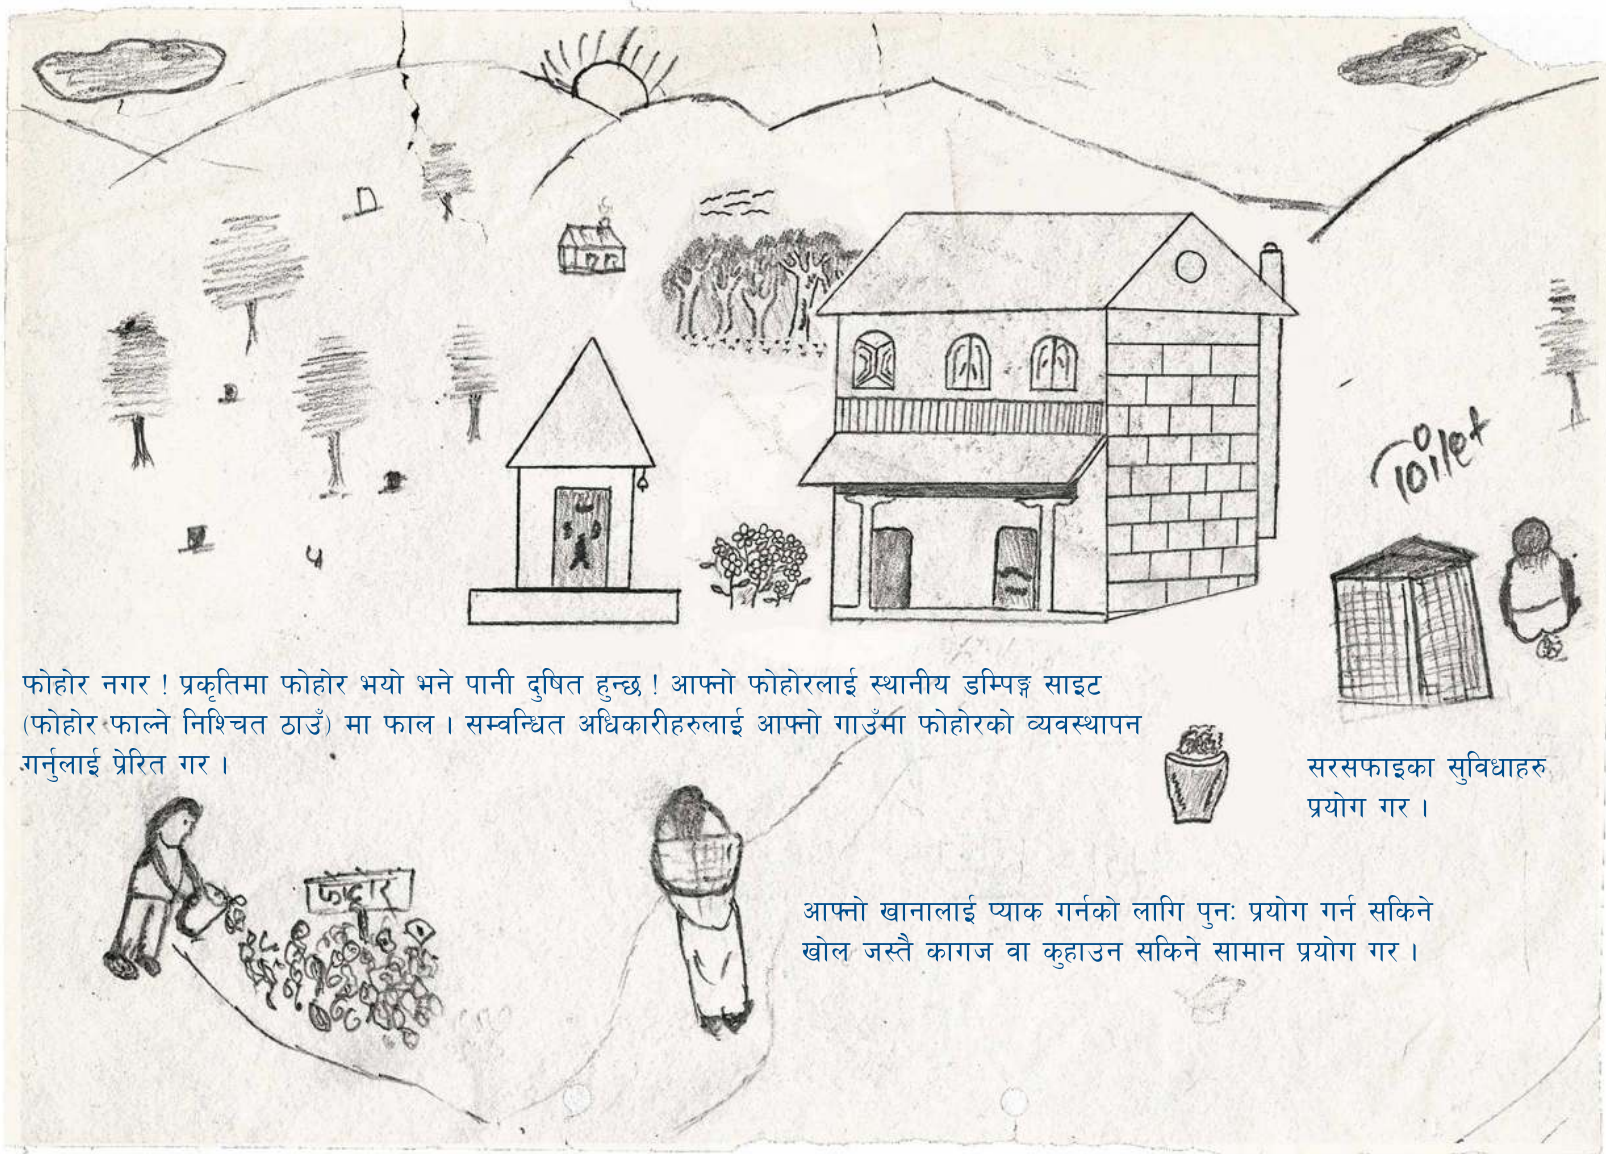 Toilet
फोहोर नगर ! प्रकृतिमा फोहोर भयो भने पानी दुषित हुन्छ ! आफ्नो फोहोरलाई स्थानीय डम्पिङ्ग साइट
(फोहोर फाल्ने निश्चित ठाउँ) मा फाल । सम्वन्धित अधिकारीहरुलाई आफ्नो गाउँमा फोहोरको व्यवस्थापन
गर्नुलाई प्रेरित गर ।
सरसफाइका सुविधाहरु
प्रयोग गर ।
फोहोर
आफ्नो खानालाई प्याक गर्नको लागि पुनः प्रयोग गर्न सकिने
खोल जस्तै कागज वा कुहाउन सकिने सामान प्रयोग गर ।